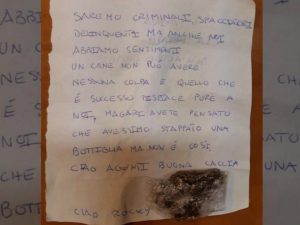 SAREMO CRIMINALI, SPACCIATORI
DELINQUENTI MA ANCHE NOI
ABBIAMO SENTIMENTI
UN CANE NON PUÒ AVERE
NESSUNA COLPA E QUELLO CHE
É SUCCESSO DISPIACE PURE A
NOI, MAGARI AVETE PENSATO
CHE AVESSIMO STAPPATO UNA
BOTTIGLIA MA NON É COSÌ.
CIAO AGENTI BUONA CACCIA
CIAO ROCKY